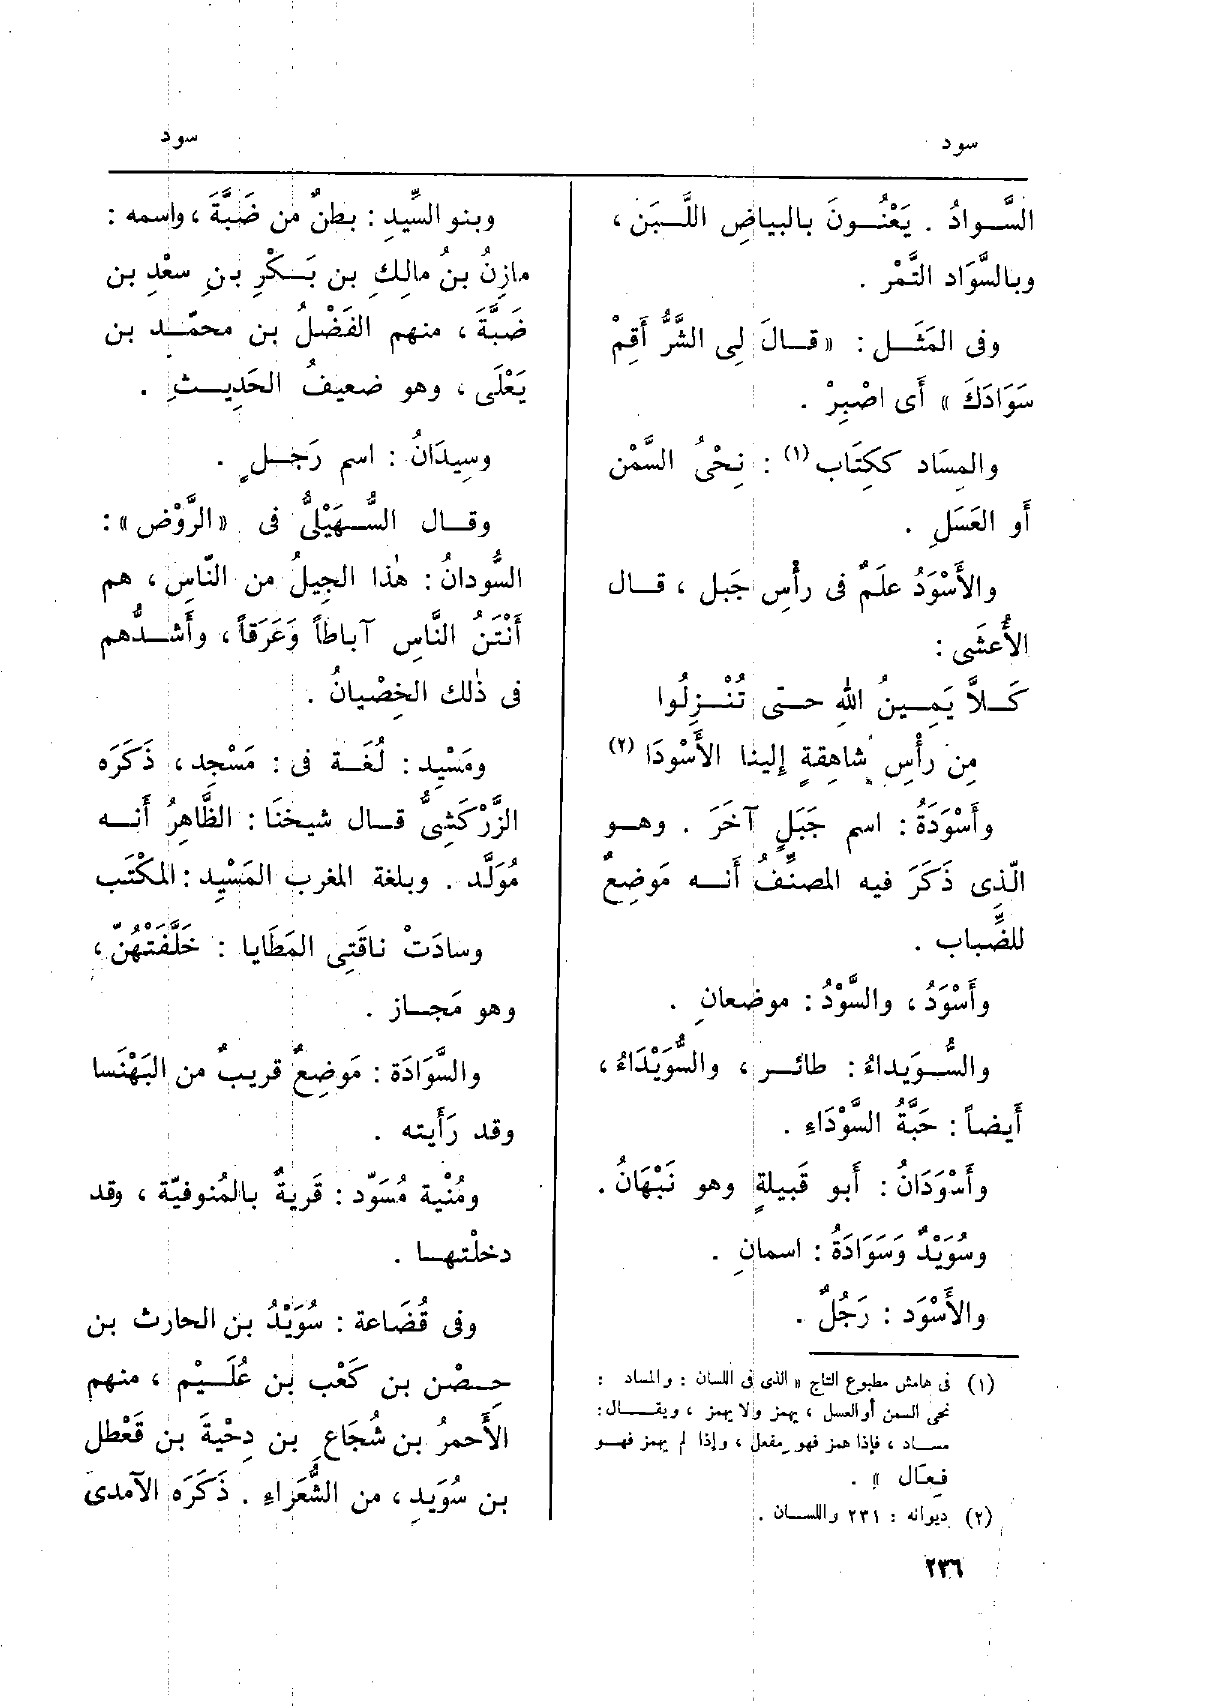 سود
سود
السَّوادُ . يَعْنُونَ بالبياضِ اللَّبَن ،
وبالسَّوَاد التَّمْر .
وفى المَثَل : « قالَ لِى الشَّرُّ أَقِمْ
سَوَادَكَ » أَى اصْبِرْ .
والمِسَاد ككِتَاب (١) : نِحْىُ السَّمْن
أَو العَسَلِ .
والأَسْوَدُ علَمٌ فى رأْسِ جَبل ، قال
الأُعشَى :
كَلاَّ يَمِينُ اللهِ حتى تُنْزِلُوا
مِن رأْسِ شاهِقةٍ إِلينا الأَسْودَا (٢)
وأَسْوَدَةُ : اسم جَبَلٍ آخَرَ . وهو
الّذى ذَكَرَ فيه المصنِّفُ أَنه مَوضِعٌ
للضِّباب .
وأَسْوَدُ ، والسَّوْدُ : موضعانِ .
والسُّويداءُ : طائر ، والسُّوَيْدَاءُ ،
أَيضاً : حَبَّةُ السَّوْدَاءِ .
وأَسْوَدَانُ : أَبو قَبيلةٍ وهو نَبْهَانُ .
وسُوَيْدٌ وَسَوَادَةُ : اسمانِ .
والأَسْوَد : رَجُلٌ .
(١) فى هامش مطبوع التاج « الذى فى اللسان : والمساد :
نحى السمن أو العسل ، يهمز ولا يهمز ، ويقال :
مساد ، فإذا همز فهو مِفعل ، وإذا لم يهمز فهو
فِعَال » .
(٢) ديوانه : ٢٣١ واللسان .
وبنو السِّيدِ : بطنٌ من ضَبَّةَ ، واسمه :
مازِنُ بنُ مالِكِ بن بَكْرِ بنِ سعْدِ بن
ضَبَّةَ ، منهم الفَضْلُ بن محمّد بن
يَعْلَى ، وهو ضعيفُ الحَدِيثِ .
وسِيدَانُ : اسم رَجلٍ .
وقال السُّهَيْلىُّ فى «الرَّوْض» :
السُّودانُ : هٰذا الجِيلُ من النّاسِ ، هم
أَنْتَنُ النَّاسِ آباطاً وَعَرَقاً ، وأَشدُّهم
فى ذٰلك الخِصْيانُ .
ومَسْيِد : لُغَة فى : مَسْجِد ، ذَكَرَه
الزَّرْكَشِىُّ قال شيخنَا : الظَّاهِرُ أَنه
مُوَلَّد . وبلغة المغرب المَسْيِد : المكْتَب
وسادَتْ ناقَتِى المَطَايا : خَلَّفَتْهُنّ ،
وهو مَجاز .
والسَّوَادَة : مَوضِعٌ قريبٌ من البَهْنَسا
وقد رَأَيته .
ومُنْية مُسَوّد : قَريةٌ بالمُنوفيّة ، وقد
دخلْتها .
وفى قُضَاعة : سُوَيْدُ بن الحارث بن
حِصْن بن كَعْب بن عُلَيْم ، منهم
الأَحمرُ بن شُجَاعِ بن دِحْيةَ بن قَعْطل
بن سُوَيدِ ، من الشُّعَراءِ . ذَكَرَه الآمدى
٢٣٦